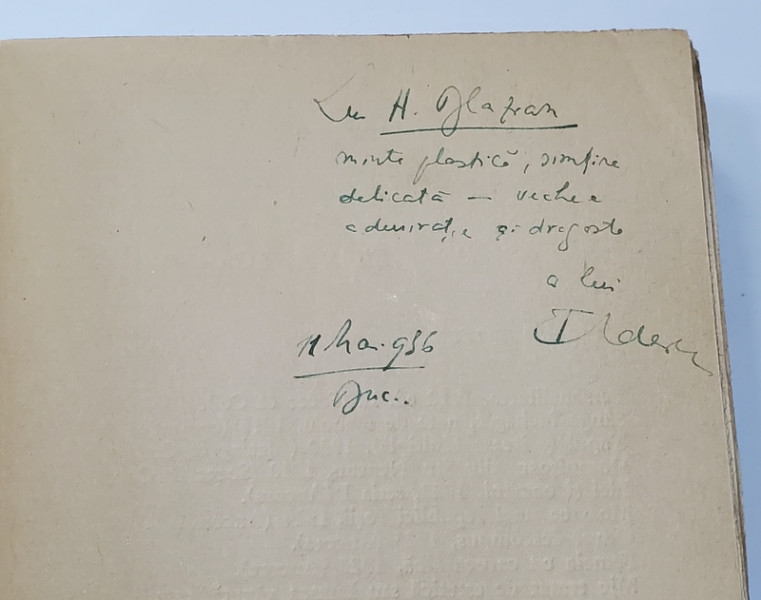 Lui H. Blazian
minte plastică, simțire
delicată — veche
admirație și dragoste
a lui
11 Mai 936
Buc..